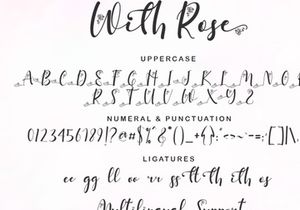 With Rose
UPPERCASE
A B C D E F G H I J K L M N O
R S T U V W X Y Z
NUMERAL & PUNCTUATION
0123456789!?@#$%&()_+{}:
LIGATURES
ee gg ll oo rr ss tt th ith os
Multilingual Support